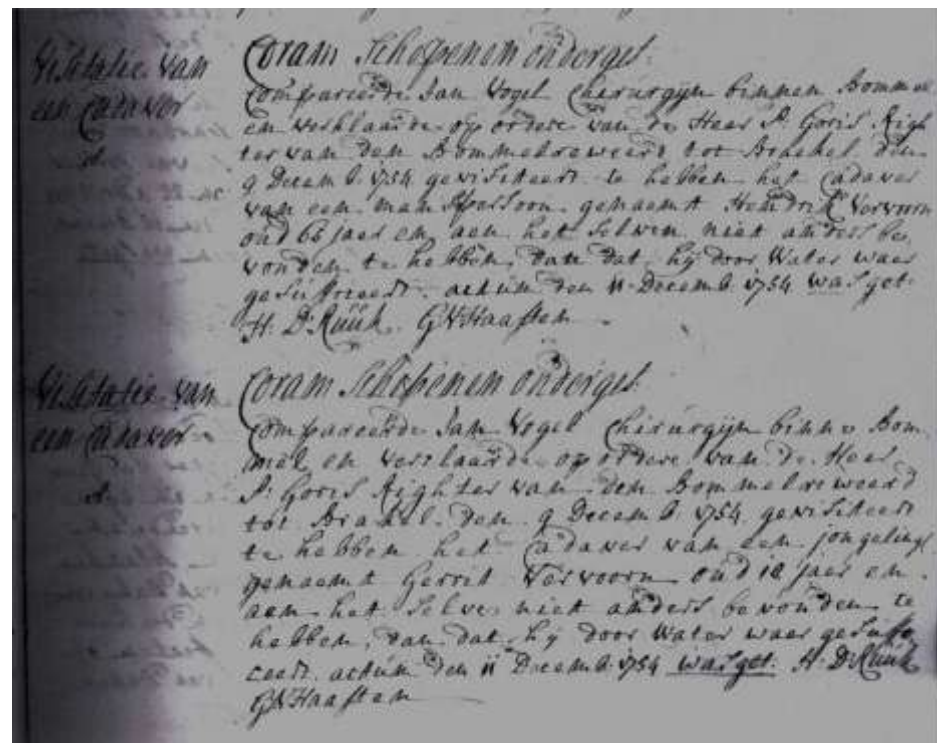 Visitatie van
een Cadaver
Coram Schepenen onderget.
Compareerde Jan Vogel Chirurgijn binnen Bommel
en verklaarde op ordere van de Heer P. Goris Righ
ter van den Bommelreweerd tot Braekel den
9 Decemb. 1754 gevisiteert te hebben het Cadaver
van een manspersoon genaemt Hendrik Vervoorn
oud 66 jaer en aen het selven niet anders be
vonden te hebben, dan dat hij door Water waer
gesuffoceert. actum den 11 Decemb. 1754 was get.
H. D: Rüük. G V Haaften
Visitatie van
een Cadaver
Coram Schepenen onderget.
Compareerde Jan Vogel Chirurgijn binne Bom
mel en verklaarde op ordere van de Heer
P. Goris Righter van den Bommelreweerd
tot Brakel den 9 Decemb. 1754 gevisiteert
te hebben het Cadaver van een jongeling
genaemt Gerrit Vervoorn oud 18 jaer en
aen het selve niet anders bevonden te
hebben, dan dat hij door Water waer gesuffo
ceert actum den 11 Decemb. 1754 was get. H. D: Rüük
G V Haaften